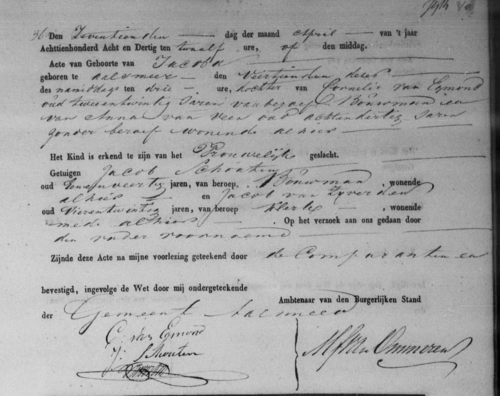 Den Zeventienden dag der maand April van 't jaar
Achttienhonderd Acht en Dertig ten twaalf ure, op den middag.
Acte van Geboorte van Jacoba
geboren te Aalsmeer den Veertienden dezer
des namiddags ten drie ure, dochter van Cornelis van Egmond
oud tweeentwintig Jaren van beroep Bouwman en
van Anna van Veen oud achtendertig Jaren
zonder beroep wonende alhier
Het Kind is erkend te zijn van het Vrouwelijk geslacht.
Getuigen Jacob Schouten
oud jaren, van beroep, Bouwman, wonende
alhier en Jacob van
oud Vierentwintig jaren, van beroep Klerk, wonende
mede alhier Op het verzoek aan ons gedaan door
den vader voornoemd
Zijnde deze Acte na mijne voorlezing geteekend door de Comparanten en
bevestigd, ingevolge de Wet door mij ondergeteekende
Ambtenaar van den Burgerlijken Stand
der Gemeente Aalsmeer
C van Egmond
J: Schouten